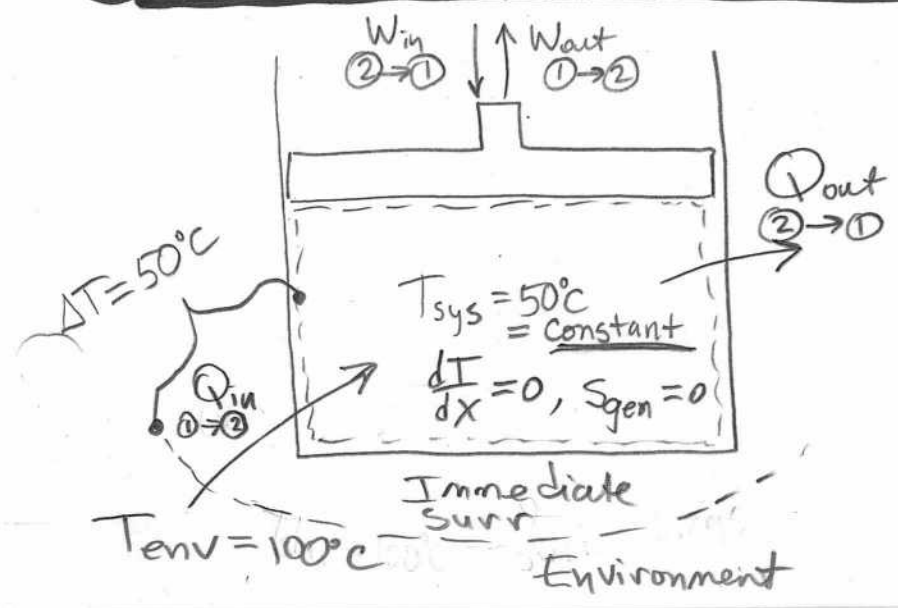 Win
②→①
Wout
①→②
Qout
②→①
ΔT=50°C
Tsys=50°C
= constant
dT/dx=0, Sgen=0
Qin
①→②
Immediate
surr
Tenv=100°C
Environment